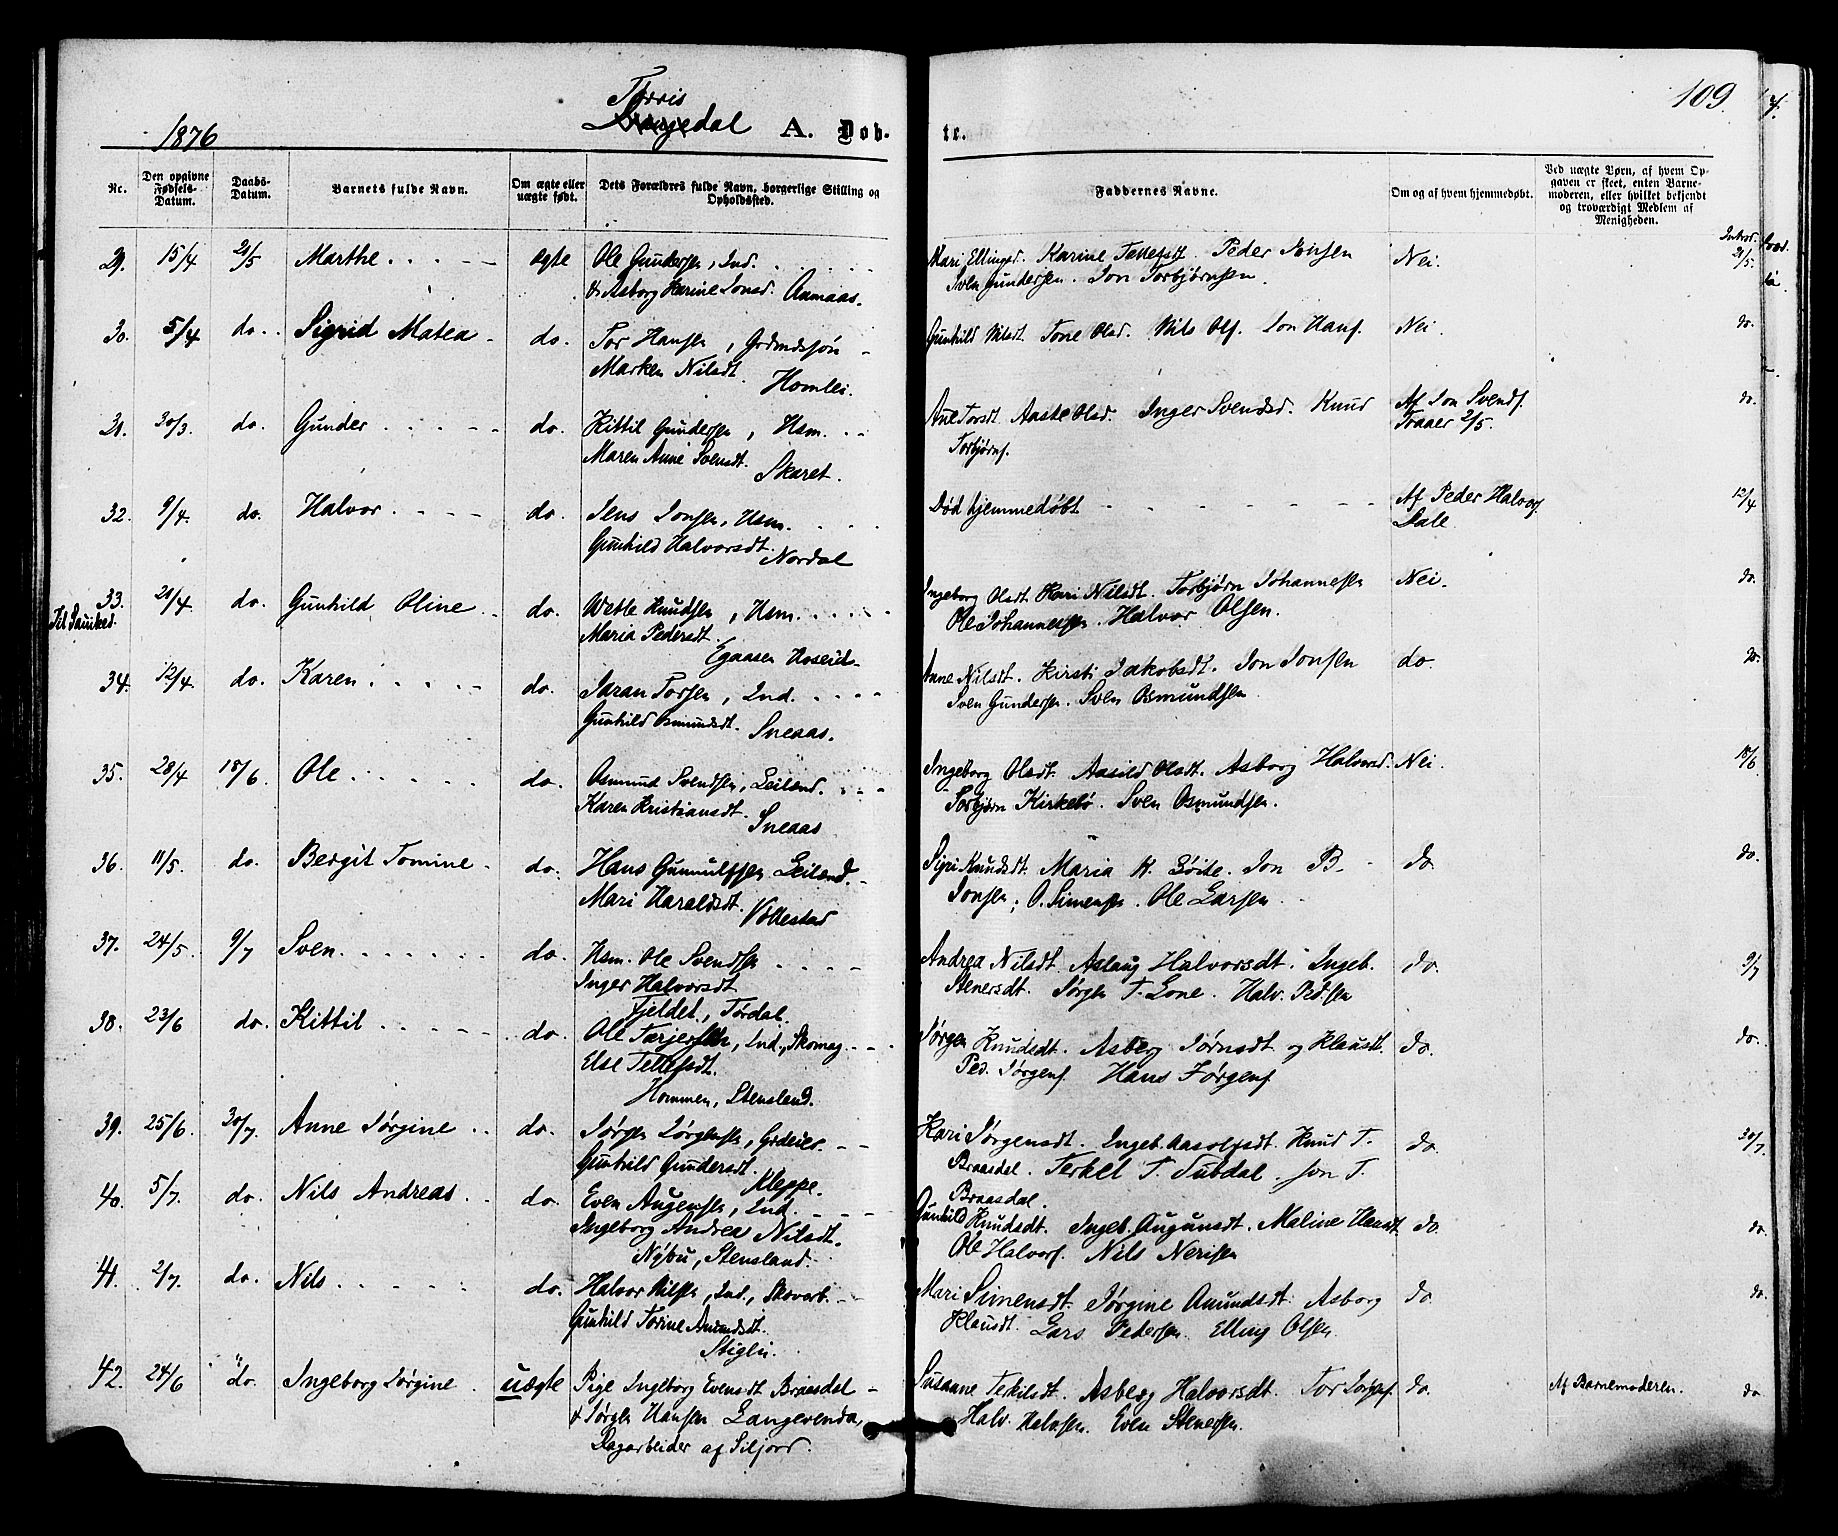 1876
Tørris
Drangedal A. Døb-
te.
109
Nr.
Den opgivne Fødsels-Datum.
Daabs-Datum.
Barnets fulde Navn.
Om ægte eller uægte født.
Dets Forældres fulde Navn, borgerlige Stilling og Opholdssted.
Faddernes Navne.
Om og af hvem hjemmedøbt.
Ved uægte Børn, af hvem Opgaven er skeet, enten Barnemoderen, eller hvilket bekjendt og troværdigt Medlem af Menigheden.
Introd.
29. 15/4 21/5 Marthe ægte Ole Gundersen, Ind.
& Asborg Karine Jonsd. Aamaas.
Kari Ellingsd. Karine Tellefsdt. Peder Jonsen Nei. 21/5
Sven Gundersen. Jon Torbjørnsen.
30. 5/4 do. Sigrid Matea do. Tor Hansen,
Marken Nilsdt. Homlei.
Gunhild Nilsdt. Tone Olsd. Nils Olsf. Jon Hansf. Nei do.
31. 30/3. do. Gunder do. Kittil Gundersen, Hsm.
Maren Anne Svensdt. Skaret.
Ane Torsdt. Aaste Olsd. Inger Svendsd. Knud
Torbjørnsf.
Af Jon Svendsf.
Traaer 2/5. do.
32. 9/4. do. Halvor do. Jens Jonsen, Hsm.
Gunhild Halvorsdt. Nordal
Død hjemmedøbt Af Peder Halvorsf.
Dale 12/4
33. 21/4 do. Gunhild Oline do. Wetle Knudsen, Hsm.
Til Sauikes.
Maria Pedersdt.
Ingeborg Olsdt. Kari Nilsdt. Torbjørn Johannesen Nei. do.
Ole Johannesen. Halvor Olsen.
34. 12/4. do. Karen do. Jaran Torsen, Ind.
Gunhild Osmundsdt. Sneaas.
Anne Nilsdt. Kirsti Jakobsdt. Jon Jonsen do. do.
Sven Gundersen. Sven Osmundsen
35. 28/4 18/6 Ole do. Osmund Svendsen, Leilænd.
Karen Kristiansdt. Sneaas
Ingeborg Olsdt. Aasild Olsdt. Asborg Halvorsd. Nei. 18/6
Torbjørn Kirkebø. Sven Osmundsen.
36. 11/5. do. Bergit Tomine do. Hans Gunnulfsen Leilænd.
Mari Haraldsdt. Vøllestad
Sigri Knudsdt. Maria K. Bøite. Jon B. do do.
Jonsen; O. Simensen. Ole Larsen
37. 24/5. 9/7 Sven do. Hsm. Ole Svendsen
Inger Halvorsdt
Fjeldet, Tørdal.
Andrea Nilsdt. Aslaug Halvorsdt. Ingeb. do. 9/7
Stenersdt. Jørgen T. Lone. Halv. Pedsen
38. 23/6 do. Kittil do. Ole Tarjersen, Ind., Skomag.
Else Tellefsdt.
Hommen, Stensland.
Jørgen Knudsdt. Asberg Jørnsdt. og Klausdt. do. do.
Ped. Jørgensf. Hans Jørgensf
39. 25/6. 30/7. Anne Jørgine do. Jørgen Jørgensen, Grdeier.
Gunhild Gundersdt. Kleppe.
Kari Jørgensdt. Ingeb. Aasolfsdt. Knud T. do. 30/7
Braasdal. Terkel T. Tubdal. Jon T.
Braasdal.
40. 5/7. do. Nils Andreas do. Even Augensen, Ind.
Ingeborg Andrea Nilsdt.
Nybu, Stensland.
Gunhild Knudsdt. Ingeb. Augunsdt. Maline Hansdt. do. do
Ole Halvorsf. Nils Nerisen
41. 2/7. do. Nils do. Halvor Nilsen, Ind., Skovarb.
Gunhild Torine Amundsdt.
Stiglei.
Mari Simensdt. Jørgine Amundsdt. Asborg do. do.
Klausdt. Lars Pedersen. Elling Olsen.
42. 24/6 do. Ingeborg Jørgine uægte Pige Ingeborg Evensdt. Braasdal
& Jørgen Hansen Langevenda,
Dagarbeider af Siljord.
Susanne Terkilsdt. Asberg Halvorsdt. Tor Torgrf. do. Af Barnemoderen. do
Halv. Halvsen. Even Stenersen.